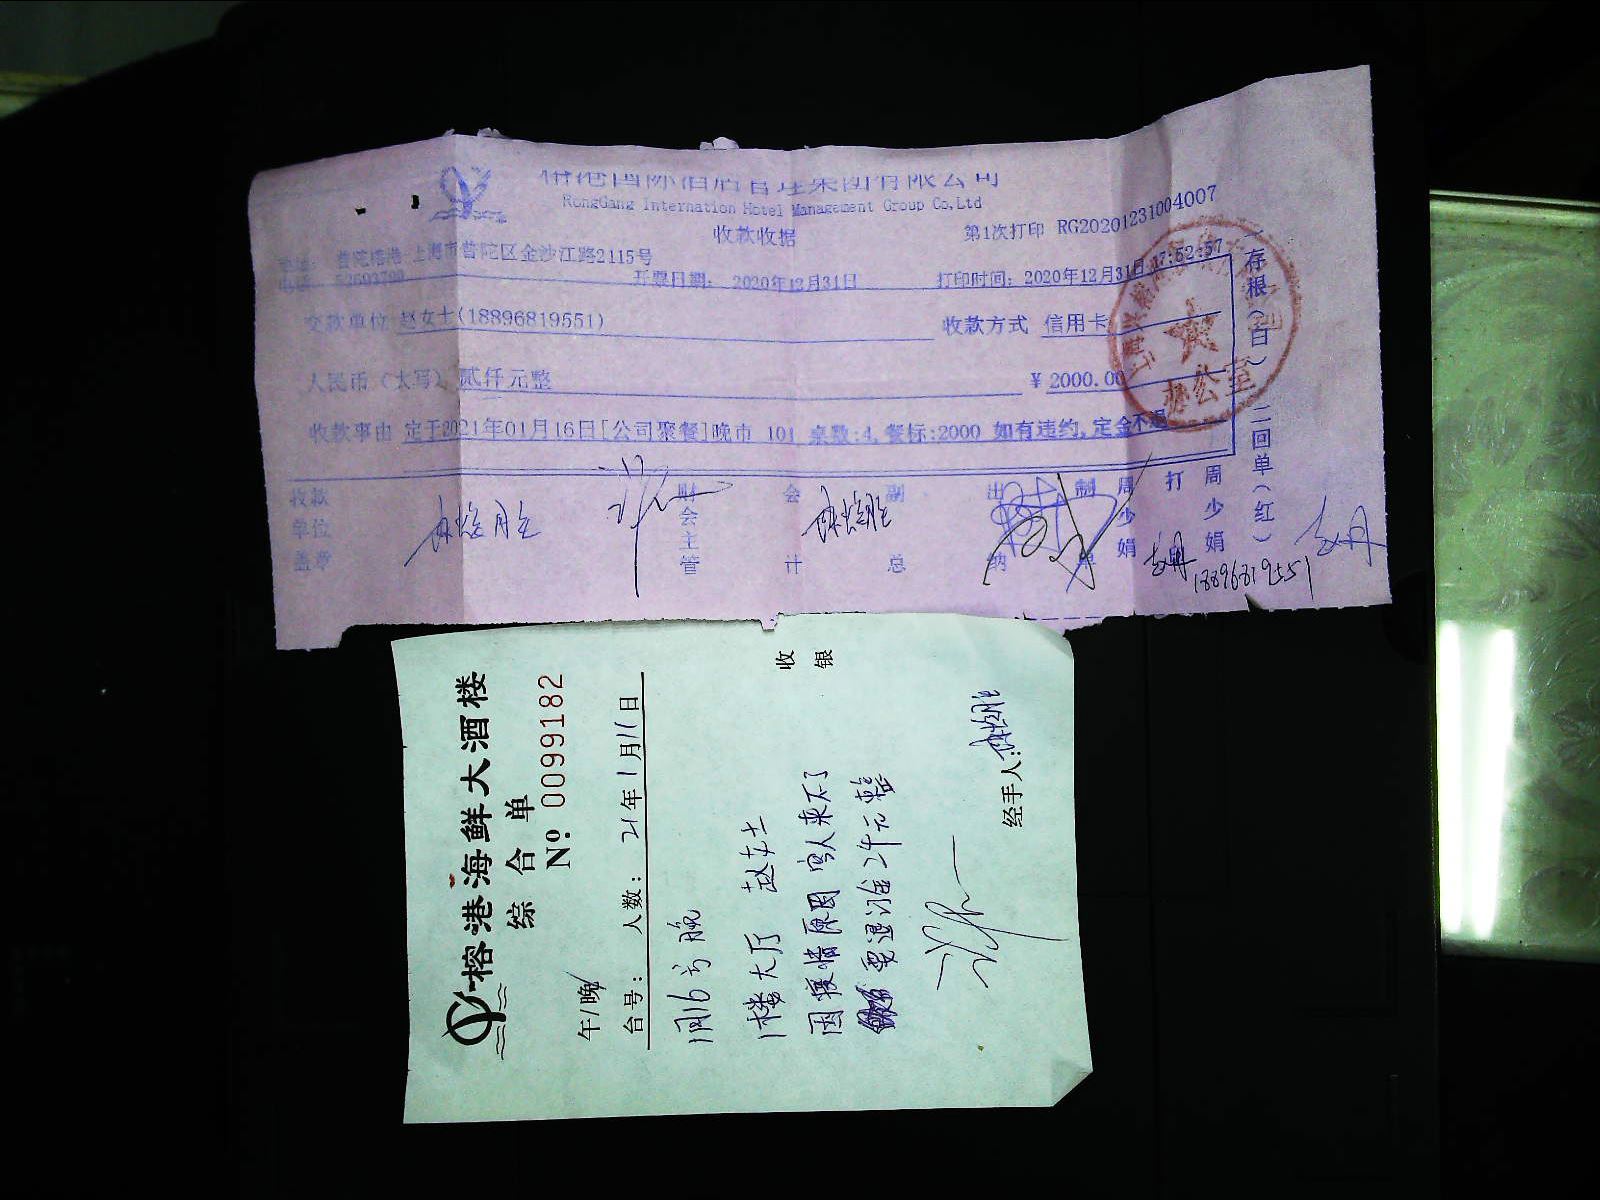 榕港国际酒店管理集团有限公司
RongGang Internation Hotel Management Group Co,Ltd
收款收据
第1次打印 RG20201231004007
地址: 普陀榕港-上海市普陀区金沙江路2115号
电话: 52693799
开票日期: 2020年12月31日
打印时间: 2020年12月31日 17:52:57
交款单位 赵女士(18896819551)
收款方式 信用卡
人民币（大写） 贰仟元整
¥ 2000.00
收款事由 定于2021年01月16日[公司聚餐]晚市 101 桌数:4,餐标:2000 如有违约,定金不退
收款单位盖章
财会主管
会计
副总
出纳
制单
周少娟
打
周少娟
18896819551
存根(白) 二回单(红)
办公室
榕港海鲜大酒楼
综合单
No. 0099182
午/晚
台号: 人数: 21年1月11日
收银
1月16号晚
1楼大厅 赵女士
因疫情原因 客人来不了
要退订金2千元整
经手人: